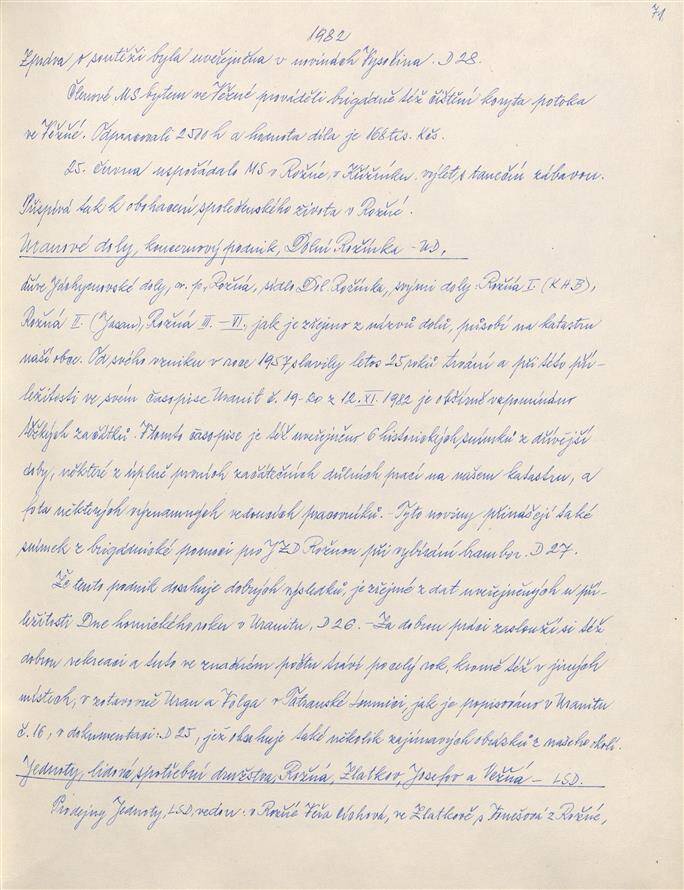 71
1982
Zpráva o soutěži byla uveřejněna v novinách Vysočina. D 28.
Členové MS bytem ve Věžné prováděli brigádně též čištění koryta potoka
ve Věžné. Odpracovali 2500 h a hodnota díla je 168 tis. Kčs.
25. června uspořádalo MS v Rožné, v Křížníku výlet s taneční zábavou.
Přispívá tak k obohacení společenského života v Rožné.
Uranové doly, koncernový podnik, Dolní Rožínka - UD,
dříve Jáchymovské doly, n. p. Rožná, sídlo Dol. Rožínka, svými doly Rožná I. (KHB),
Rožná II. (Jasan), Rožná III. - VI. jak je zřejmo z názvů dolů, působí na katastru
naší obce. Od svého vzniku v roce 1957 slavily letos 25 roků trvání a při této pří-
ležitosti ve svém časopise Uranit č. 19-20 z 12. XI. 1982 je obšírně vzpomínáno
těžkých začátků. V tomto časopise je též uveřejněno 6 historických snímků z dřívější
doby, některé z úplně prvních začátečních důlních prací na našem katastru, a
fota některých významných vedoucích pracovníků. - Tyto noviny přinášejí také
snímek z brigádnické pomoci pro JZD Rožnou při vybírání brambor. D 27.
Že tento podnik dosahuje dobrých výsledků, je zřejmé z dat uveřejněných u pří-
ležitosti Dne horníckého roku v Uranitu, D 26. - Za dobrou práci zaslouží si též
dobrou rekreaci a tuto ve značném počtu tráví po celý rok, kromě též v jiných
místech, v zotavovně Uran a Volga v Tatranské Lomnici, jak je popisováno v Uranitu
č. 16, v dokumentaci: D 25, jež obsahuje také několik zajímavých obrázků z našeho okolí.
Jednoty, lidová spotřební družstva, Rožná, Zlatkov, Josefov a Věžná - LSD.
Prodejny Jednoty, LSD, vedou: v Rožné Věra Cichová, ve Zlatkově s. Tomešová z Rožné,